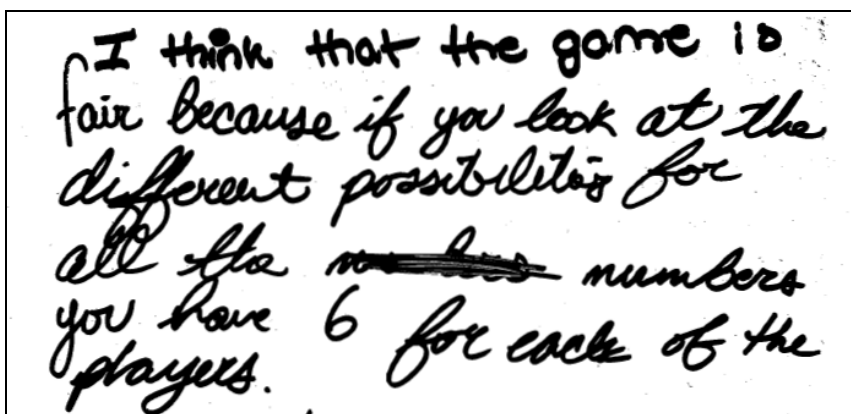 I think that the game is
fair because if you look at the
different possibilitis for
all the numbers
you have 6 for each of the
players.